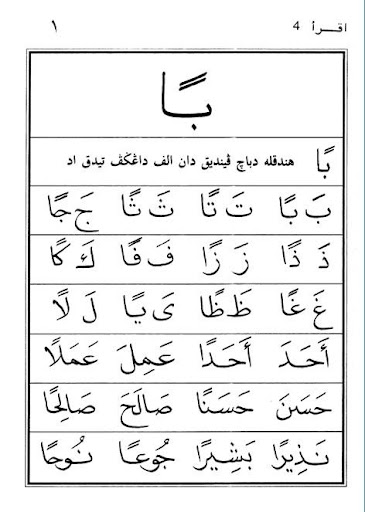 اقرأ 4 ١
بًا
بًا هندقله دباچ ڤينديق دان الف داڠكڤ تيدق اد
بَ بًا تَ تًا ثَ ثًا جَ جًا
ذَ ذًا زَ زًا فَ فًا كَ كًا
غَ غًا ظَ ظًا يَ يًا لَ لًا
أَحَدَ أَحَدًا عَمِلَ عَمَلًا
حَسَنَ حَسَنًا صَالَحَ صَالِحًا
نَذِيرًا بَشِيرًا جُوعًا نُوحًا